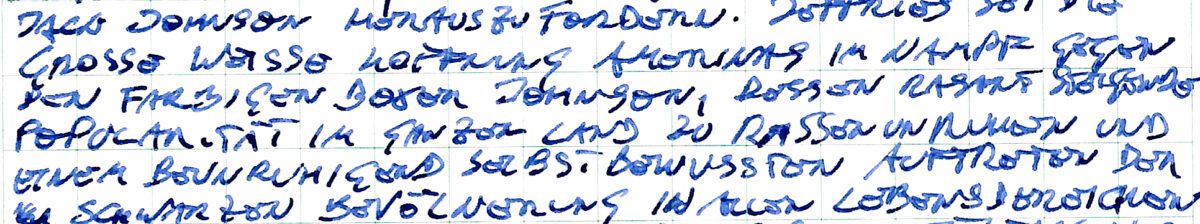 JACK JOHNSON HERAUSZUFORDERN. JEFFRIES SEI DIE
GROSSE WEISSE HOFFNUNG AMERIKAS IM KAMPF GEGEN
DEN FARBIGEN BOXER JOHNSON, DESSEN RASANT STEIGENDE
POPULARITÄT IM GANZEN LAND ZU RASSENUNRUHEN UND
EINEM BEUNRUHIGEND SELBSTBEWUSSTEN AUFTRETEN DER
SCHWARZEN BEVÖLKERUNG IN ALLEN LEBENSBEREICHEN